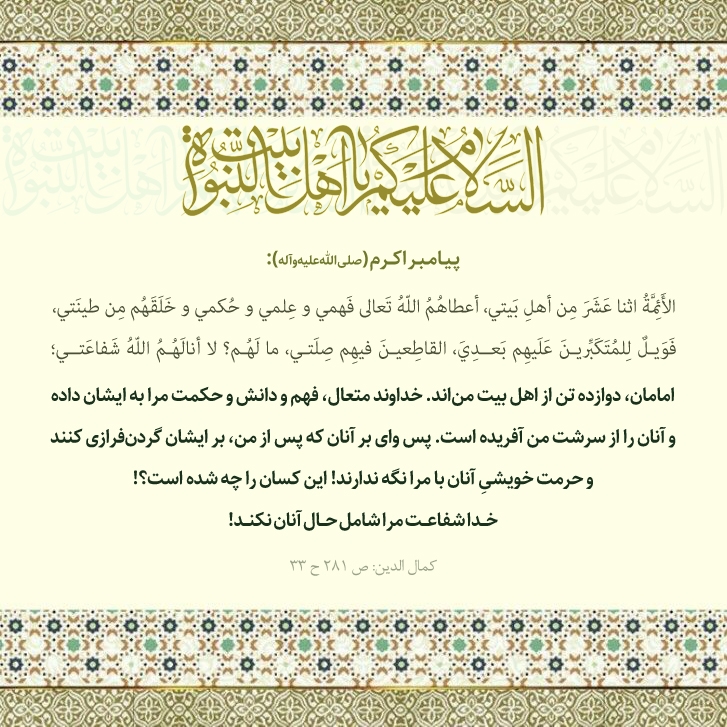 السَّلامُ عَلَيكُم يا اَهلَ بَيتِ النُّبُوَّةِ
پیامبر اکرم (صلی‌الله‌علیه‌وآله):
الأَئِمَّةُ اثنا عَشَرَ مِن أهلِ بَيتي، أعطاهُمُ اللّهُ تَعالى فَهمي و عِلمي و حُكمي و خَلَقَهُم مِن طينَتي،
فَوَيلٌ لِلمُتَكَبِّرينَ عَلَيهِم بَعدِيَ، القاطِعينَ فيهِم صِلَتي، ما لَهُم؟ لا أنالَهُمُ اللّهُ شَفاعَتي؛
امامان، دوازده تن از اهل بیت من‌اند. خداوند متعال، فهم و دانش و حکمت مرا به ایشان داده
و آنان را از سرشت من آفریده است. پس وای بر آنان که پس از من، بر ایشان گردن‌فرازی کنند
و حرمت خویشیِ آنان با مرا نگه ندارند! این کسان را چه شده است؟!
خدا شفاعت مرا شامل حال آنان نکند!
کمال الدین: ص ۲۸۱ ح ۳۳